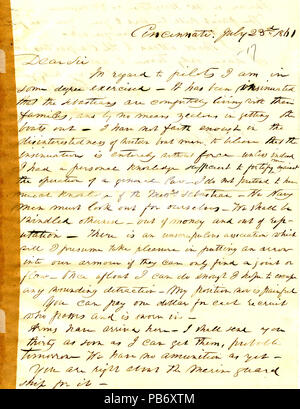 Cincinnati, July 23rd 1861
17
Dear Sir
In regard to pilots I am in
some degree exercised - It has been insinuated
that the pilots are completely living with their
families, and by no means zealous in getting the
boats out - I have not faith enough in the
disinterestedness of either but men, to believe that the
insinuation is entirely without force unless indeed
I had a personal knowledge sufficient to fortify me
the opinion of a general
men must look out for ourselves. We shall be
swindled otherwise - out of money and out of rep-
utation - There is an unscrupulous association which
will I presume take pleasure in putting an arrow
into our armour if they can only find a joint or
flaw. Once afloat I can do enough I hope to escape
any wounding detraction - My position now is painful
You can pay one dollar for each recruit
who passes and is sworn in -
Arms have arrived here - I shall send you
thirty as soon as I can get them, probably
tomorrow We have no ammunition as yet -
You are right about the Marine guard
ship for it -
alamy
Image ID: PB6XTM
www.alamy.com